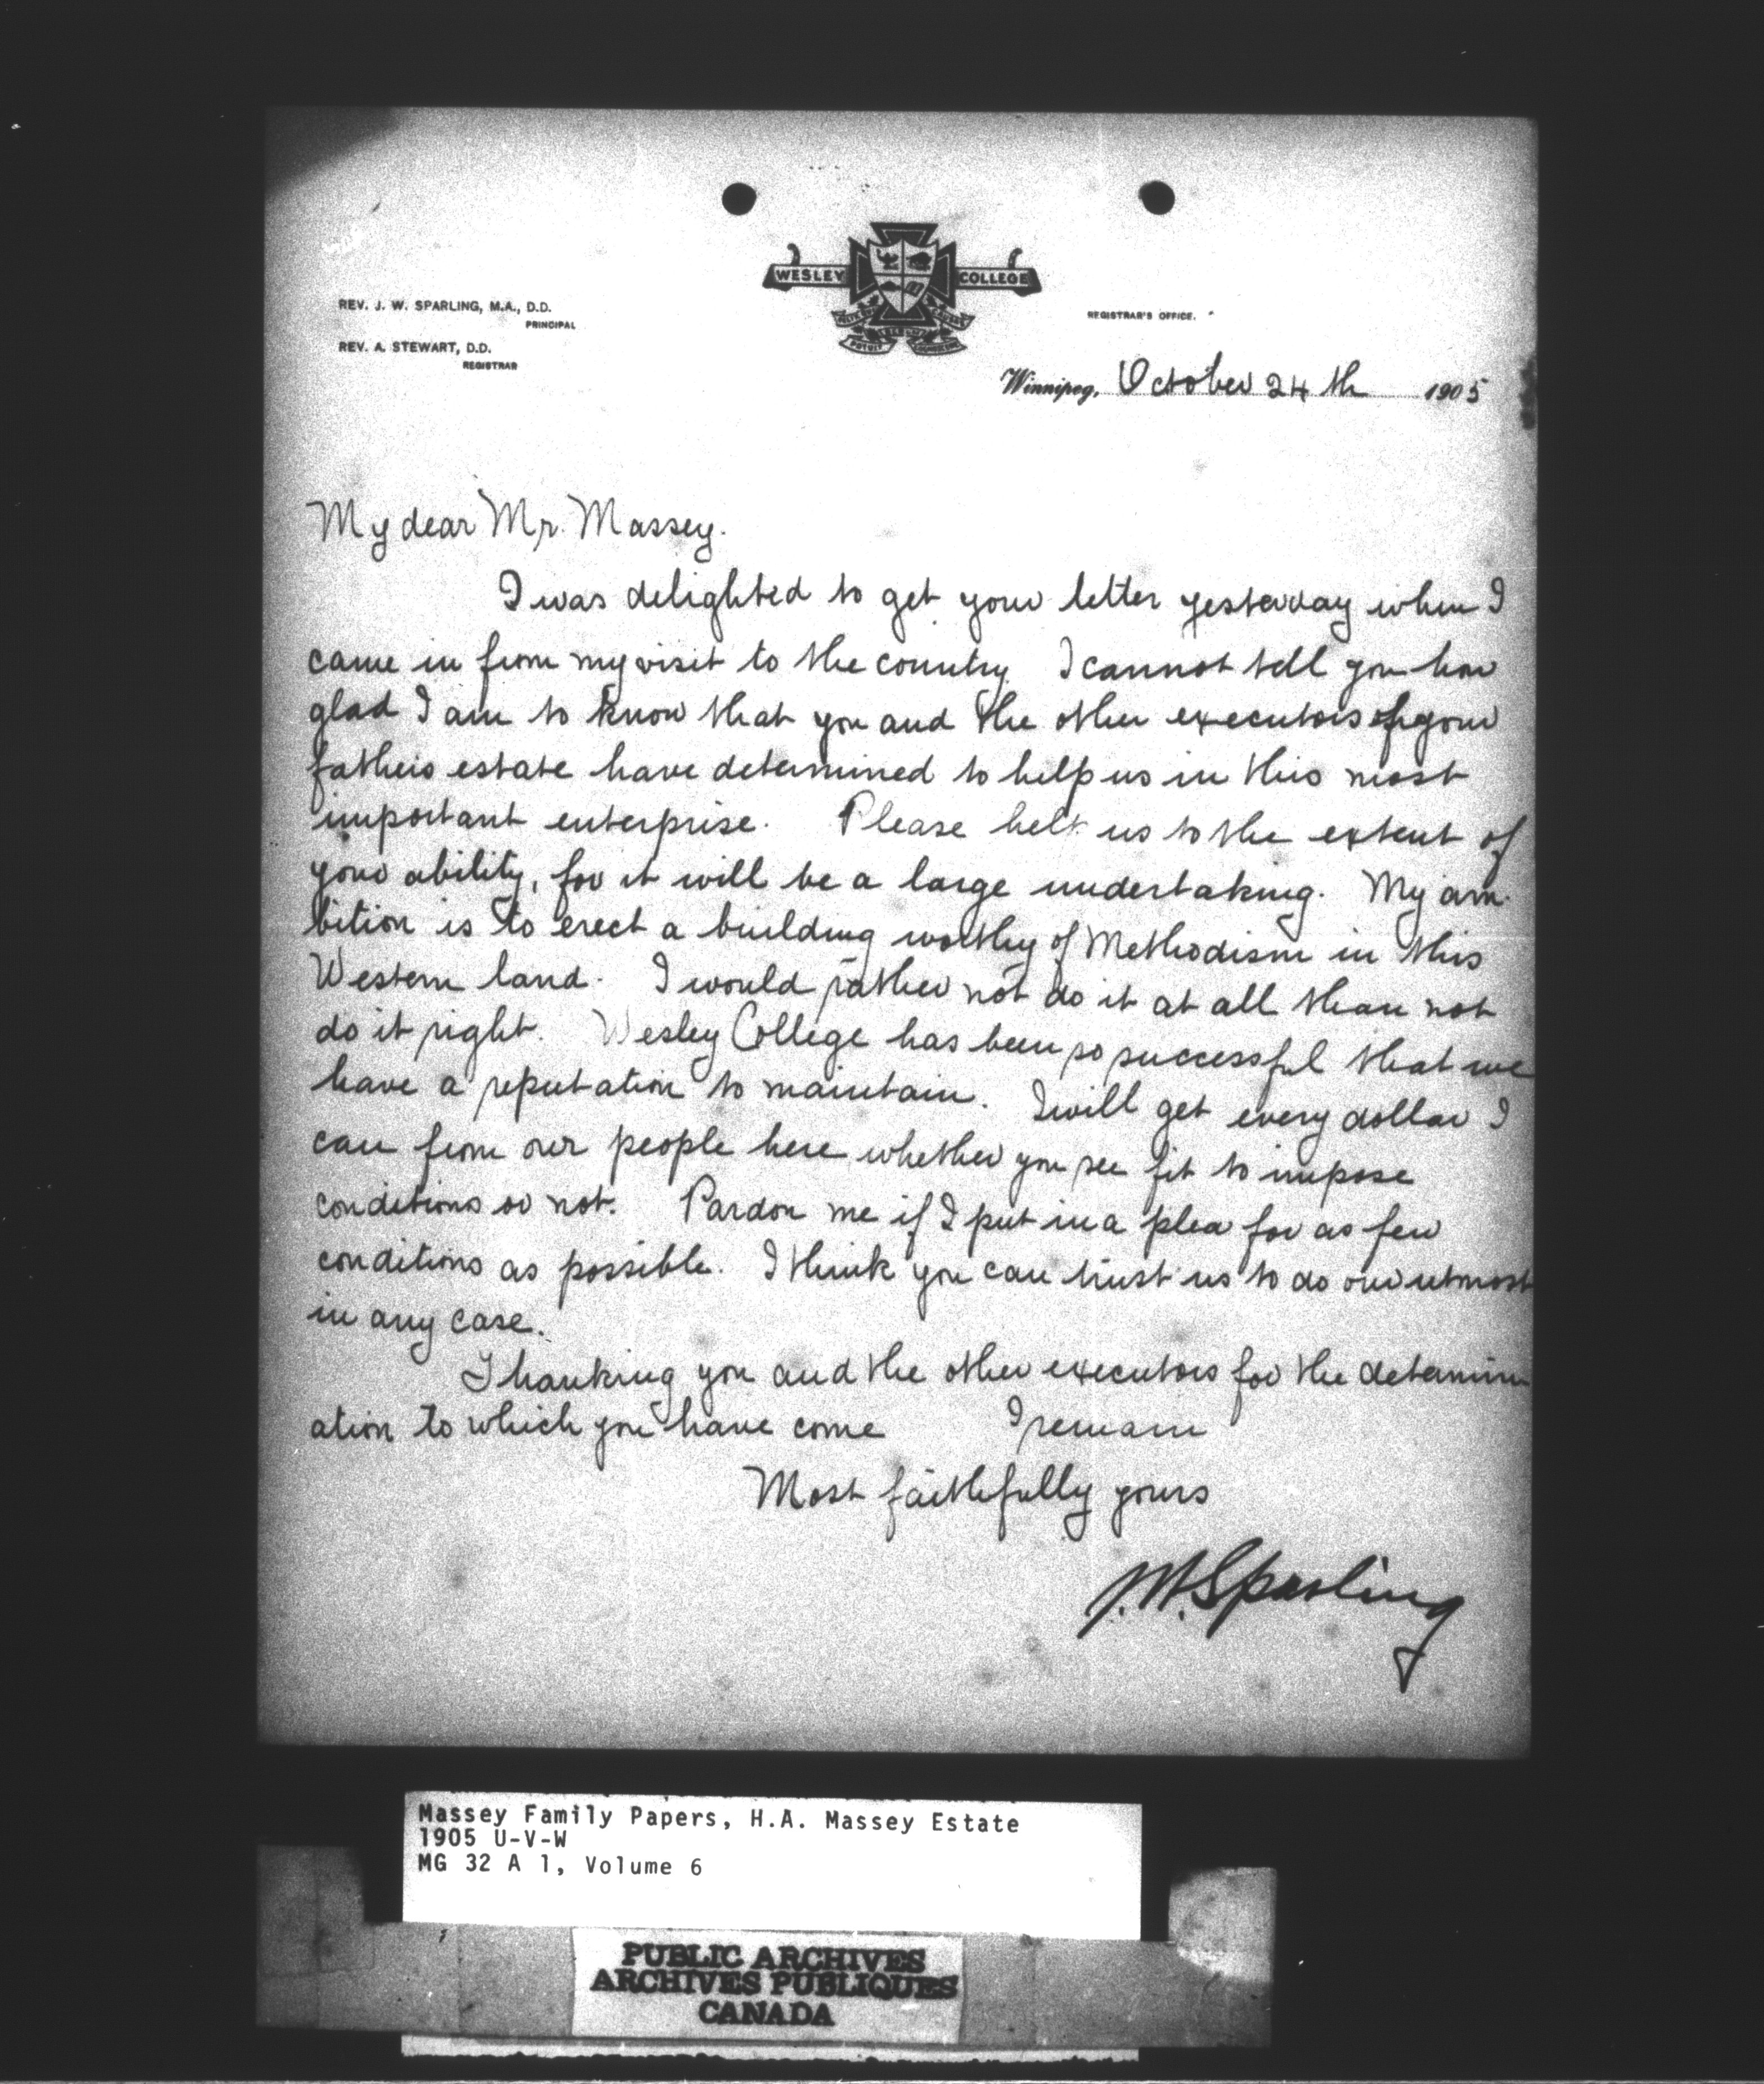 WESLEY COLLEGE
REV. J. W. SPARLING, M.A., D.D.
PRINCIPAL
REV. A. STEWART, D.D.
REGISTRAR
REGISTRAR'S OFFICE.
Winnipeg, October 24th 1905
My dear Mr. Massey.
I was delighted to get your letter yesterday when I
came in from my visit to the country. I cannot tell you how
glad I am to know that you and the other executors of your
fathers estate have determined to help us in this most
important enterprise. Please help us to the extent of
your ability, for it will be a large undertaking. My am-
bition is to erect a building worthy of Methodism in this
Western land. I would rather not do it at all than not
do it right. Wesley College has been so successful that we
have a reputation to maintain. I will get every dollar I
can from our people here whether you see fit to impose
conditions or not. Pardon me if I put in a plea for as few
conditions as possible. I think you can trust us to do our utmost
in any case.
Thanking you and the other executors for the determin
ation to which you have come I remain
Most faithfully yours
J.W. Sparling
Massey Family Papers, H.A. Massey Estate
1905 U-V-W
MG 32 A 1, Volume 6
PUBLIC ARCHIVES
ARCHIVES PUBLIQUES
CANADA